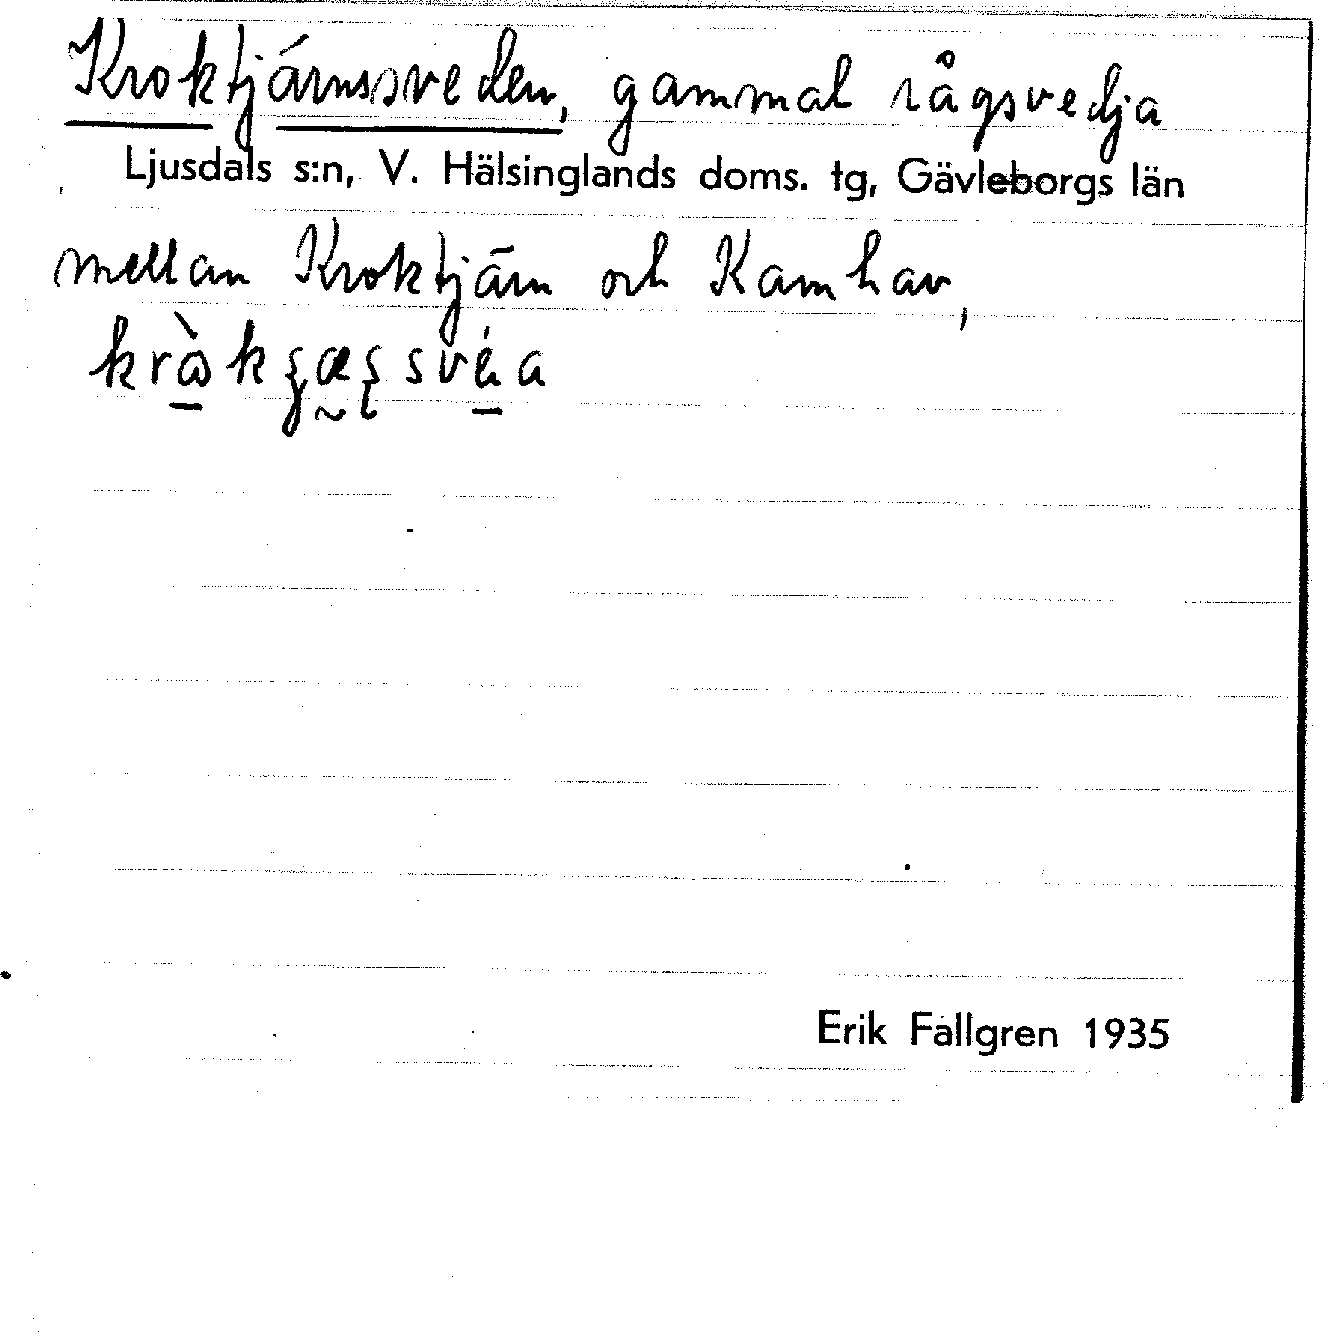 Kroktjärnssveden, gammal rågsvedja
Ljusdals s:n, V. Hälsinglands doms. tg, Gävleborgs län
mellan Kroktjärn och Kamhav,
Erik Fallgren 1935